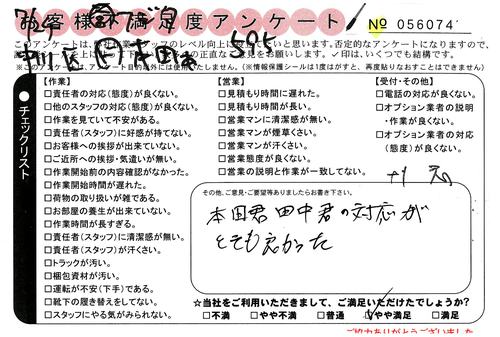 お客様不満足度アンケート
No 056074
7/29
595
チェックリスト
【作業】
□責任者の対応(態度)が良くない。
□他のスタッフの対応(態度)が良くない。
□作業を見ていて不安がある。
□責任者(スタッフ)に好感が持てない。
□お客様への挨拶が出来ていない。
□ご近所への挨拶・気遣いが無い。
□作業開始前の内容確認がなかった。
□作業開始時間が遅れた。
□荷物の取り扱いが雑である。
□お部屋の養生が出来ていない。
□作業時間が長すぎる。
□責任者(スタッフ)に清潔感が無い。
□責任者(スタッフ)が汗くさい。
□トラックが汚い。
□梱包資材が汚い。
□運転が不安(下手)である。
□靴下の履き替えをしてない。
□スタッフにやる気がみられない。
【営業】
□見積もりが時間に遅れた。
□見積もり時間が長い。
□営業マンに清潔感が無い。
□営業マンが煙草くさい。
□営業マンが汗くさい。
□営業態度が良くない。
□営業の説明と作業が一致してない。
【受付・その他】
□電話の対応が良くない。
□オプション業者の説明
・作業が良くない。
□オプション業者の対応
(態度)が良くない。
その他、ご意見・ご要望等ありましたらお書き下さい。
本田君田中君の対応が
とても良かった
☆当社をご利用いただきまして、ご満足いただけたでしょうか?
□不満 □やや不満 □普通 □やや満足 □満足
ご協力ありがとうございました